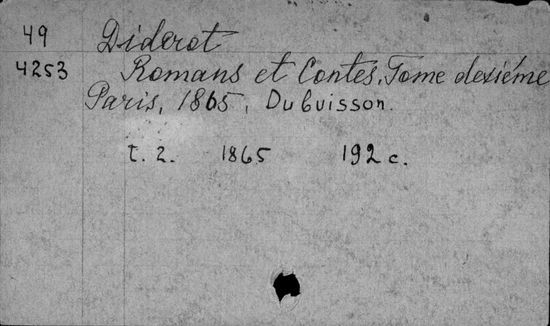 49 Diderot
4253 Romans et Contes. Tome dexiéme
Paris, 1865, Dubuisson.
t. 2. 1865 192 c.